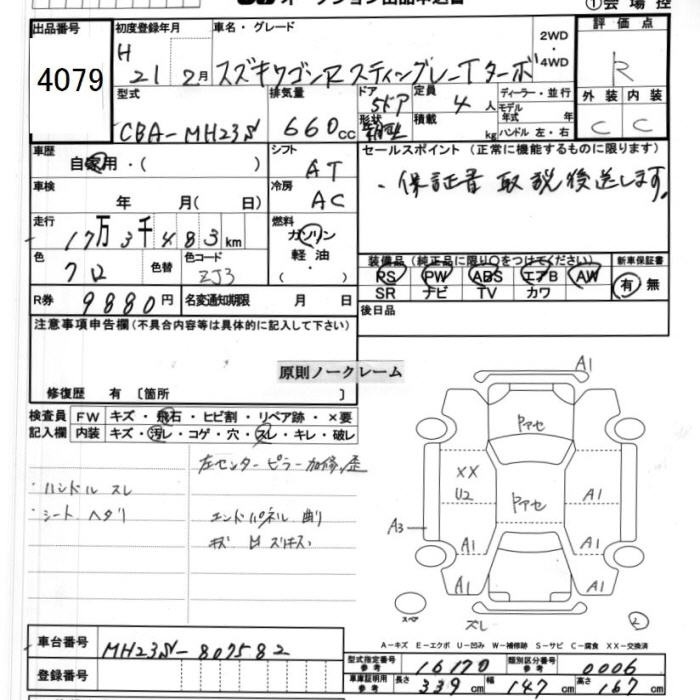 オークション出品申込書 ①会場控
出品番号 初度登録年月 車名・グレード 2WD・4WD 評価点
4079 H 21 2月 スズキワゴンR スティングレーTターボ R
型式 排気量 ドア 定員 ディーラー・並行 外装 内装
CBA-MH23S 660cc 5ドア 4人 モデル年式 年 C C
形状 箱型 積載 kg ハンドル 左・右
車歴 シフト セールスポイント(正常に機能するものに限ります)
自家用・( ) AT ・保証書 取説後送します。
車検 年 月( 日) 冷房 AC
走行 燃料
17万3千483km ガソリン 軽油・( )
色 色替 色コード 装備品(純正品に限り○をつけてください) 新車保証書
クロ ZJ3 PS PW ABS エアB AW 有・無
SR ナビ TV カワ
R券 9880円 名変通知期限 月 日 後日品
注意事項申告欄(不具合内容等は具体的に記入して下さい)
原則ノークレーム
修復歴 有〔箇所 〕
検査員 FW キズ・飛石・ヒビ割・リペア跡・×要
記入欄 内装 キズ・汚レ・コゲ・穴・スレ・キレ・破レ
左センターピラー加修歪
・ハンドル スレ
・シート ヘタリ エンドパネル 曲り
A1
Pアセ
XX
U2 Pアセ A1
A3
A1 A1
A1 A1
スペア ズレ 2
A-キズ E-エクボ U-凹み W-補修跡 S-サビ C-腐食 XX-交換済
車台番号 MH23S-807582
型式指定番号 参考 16170 類別区分番号 参考 0006
登録番号 車庫証明用 参考 長さ 339cm 幅 147cm 高さ 167cm